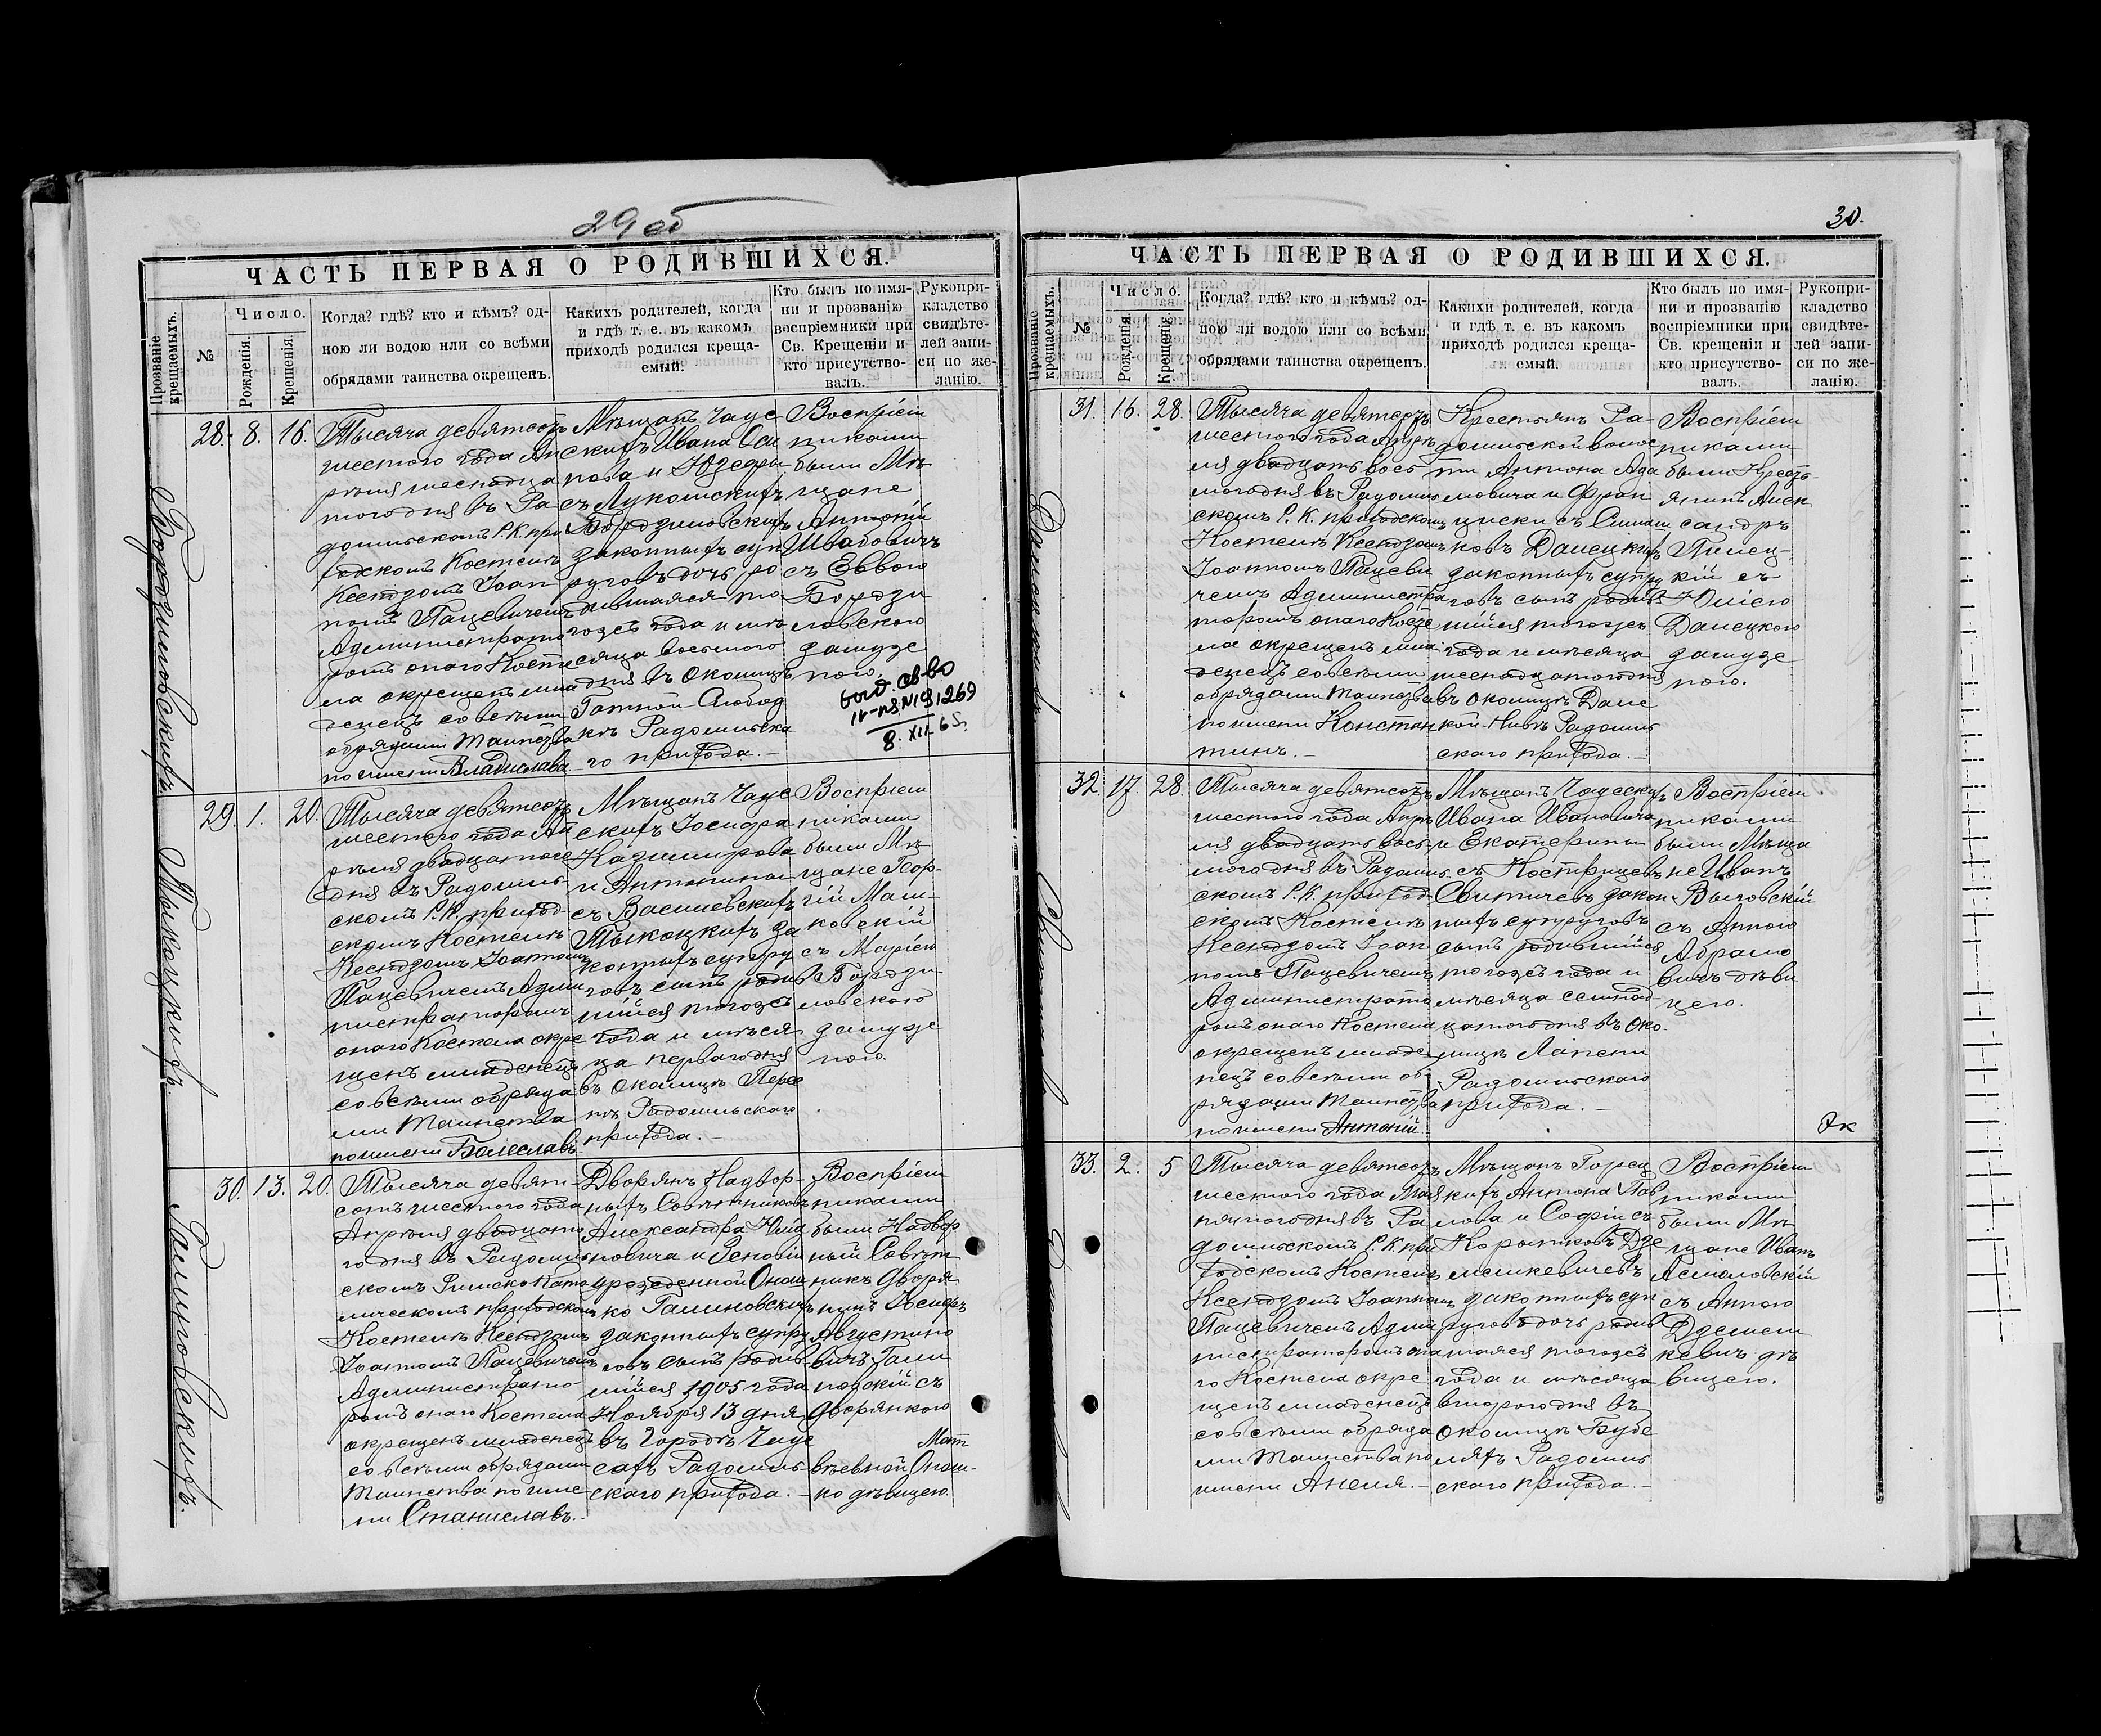 29 об
ЧАСТЬ ПЕРВАЯ О РОДИВШИХСЯ.
Прозваніе крещаемыхъ.
№
Число.
Рожденія.
Крещенія.
Когда? гдѣ? кто и кѣмъ? од-
ною ли водою или со всѣми
обрядами таинства окрещенъ.
Какихъ родителей, когда
и гдѣ т. е. въ какомъ
приходѣ родился креща-
емый.
Кто былъ по имя-
ни и прозванію
воспріемники при
Св. Крещеніи и
кто присутство-
валъ.
Рукопри-
кладство
свидѣте-
лей запи-
си по же-
ланію.
Бородиловскихъ
28. 8. 16.
Тысяча девятсотъ
шестого года Ап
рѣля шеснадца
тогодня въ Ра
домльскомъ Р.К. при
ходскомъ Костелѣ
Ксендзомъ Іоан
номъ Пацевичемъ
Администрато
ромъ онаго Косте
ла окрещенъ мла
денецъ совсѣми
обрядами Таинства
поимени Владислава
Мѣщанъ Чаус
скихъ Ивана Оси
пова и Юзефы
съ Лукомскихъ
Бородиловскихъ
законныхъ суп
руговъ дочь ро
дившаяся то
гоже года и мѣ
сяца восьмого
дня въ Околицѣ
Гатной-Слобод
кѣ Радомльска
го прихода.-
Воспріем
никами
были Мѣ
щане
Антоній
съ Еввою
Бороди
ловского
замуже
ного.
8. XII-65
Тыкоцкихъ.
29. 1. 20.
Тысяча девятсотъ
шестого года Ап
рѣля двадцатого
дня въ Радомль
скомъ Р.К. приход
скомъ Костелѣ
Ксендзомъ Іоанномъ
Пацевичемъ Адми
нистраторомъ
онаго Костела окре
щенъ младенецъ
совсѣми обряда
ми Таинства
поимени Болеславъ
Мѣщанъ Чаус
скихъ Іосифа
Казимирова
и Антонины
съ Василевскихъ
Тыкоцкихъ за
конныхъ супру
говъ сынъ родив
шійся тогоже
года и мѣся
ца первагодня
въ Околицѣ Пере
Радомльского
прихода.-
Воспріем
никами
были Мѣ
щане Геор-
гій Маш-
ковскій
съ Маріею
Бороди
ловского
замуже
ного.
Галиновскихъ.
30. 13. 20.
Тысяча девят-
сотъ шестого года
Апрѣля двадцато
годня въ Радомль
скомъ Римско Като
лическомъ приходскомъ
Костелѣ Ксендзомъ
Іоанномъ Пацевичемъ
Администрато-
ромъ онаго Костела
окрещенъ младенецъ
совсѣми обрядами
Таинства поиме
ни Станиславъ.-
Дворянъ Надвор-
ныхъ Совѣтниковъ
Александра
новича и Зенобіи
урожденной Онош
ко Галиновскихъ
законныхъ супру
говъ сынъ родив
шійся 1905 года
Ноября 13 дня
въ Городѣ Чаус
сахъ Радомль-
скаго прихода.-
Воспріем
никами
были Надвор
ный Совѣт
никъ Дворя
нинъ Іосифъ
Августино
вичъ Гали
новскій съ
Дворянкою
Мат
вѣевной Онош-
ко дѣвицею.
30.
ЧАСТЬ ПЕРВАЯ О РОДИВШИХСЯ.
Прозваніе крещаемыхъ.
№
Число.
Рожденія.
Крещенія.
Когда? гдѣ? кто и кѣмъ? од-
ною ли водою или со всѣми
обрядами таинства окрещенъ.
Какихи родителей, когда
и гдѣ т. е. въ какомъ
приходѣ родился креща-
емый.
Кто былъ по имя-
ни и прозванію
воспріемники при
Св. крещеніи и
кто присутство-
валъ.
Рукопри-
кладство
свидѣте-
лей запи-
си по же-
ланію.
31. 16. 28.
Тысяча девятсотъ
шестого года Апрѣ
ля двадцать вось
могодня въ Радомль
скомъ Р.К. приходскомъ
Костелѣ Ксендзомъ
Іоанномъ Пацеви
чемъ Администра
торомъ онаго Косте
ла окрещенъ мла
денецъ совсѣми
обрядами Таинства
поимени Констан
тинъ.-
Крестьянъ Ра-
домльской волос
ти Антона Ада
мовича и Фран
циски съ
Данецкихъ
законныхъ супру
говъ сынъ родив
шійся тогоже
года и мѣсяца
шеснадцатогодня
въ околицѣ Дане
кой-Нивѣ Радомль
скаго прихода.-
Воспріем
никами
были Крестъ-
янинъ Алек
сандръ
кій съ
Юліею
Данецкого
замуже
ного.
32. 17. 28.
Тысяча девятсотъ
шестого года Апрѣ
ля двадцать вось
могодня въ Радомль
скомъ Р.К. приход-
скомъ Костелѣ
Ксендзомъ Іоан
номъ Пацевичемъ
Администрато
ромъ онаго Костела
окрещенъ младе
нецъ совсѣми об
рядами Таинства
поимени Антоній
Мѣщанъ Чаусскихъ
Ивана Ивановича
и Екатерины
съ Кострицевъ
Свитичевъ закон
ныхъ супруговъ
сынъ родившійся
тогоже года и
мѣсяца семнад-
цатогодня въ Око-
лицѣ Лапени
Радомльскаго
прихода.-
Воспріем
никами
были Мѣща
не Иванъ
съ Анною
Абрамо
вичъ дѣви
цею.
33. 2. 5
Тысяча девятсотъ
шестого года Мая
пятогодня въ Ра
домльскомъ Р.К. при
ходскомъ Костелѣ
Ксендзомъ Іоанномъ
Пацевичемъ Адми
нистраторомъ она
го Костела окре
щенъ младенецъ
совсѣми обряда
ми Таинства по
имени Анеля.-
Мѣщанъ Горец
кихъ Антона Пав
лова и Софіи съ
Дзе
мешкевичевъ
законныхъ суп
руговъ дочь родив
шаяся тогоже
года и мѣсяца
второгодня въ
околицѣ Бубе
ляхъ Радомль
скаго прихода.-
Воспріем
никами
были Мѣ
щане Иванъ
съ Анною
Дземеш
кевич дѣ
вицею.